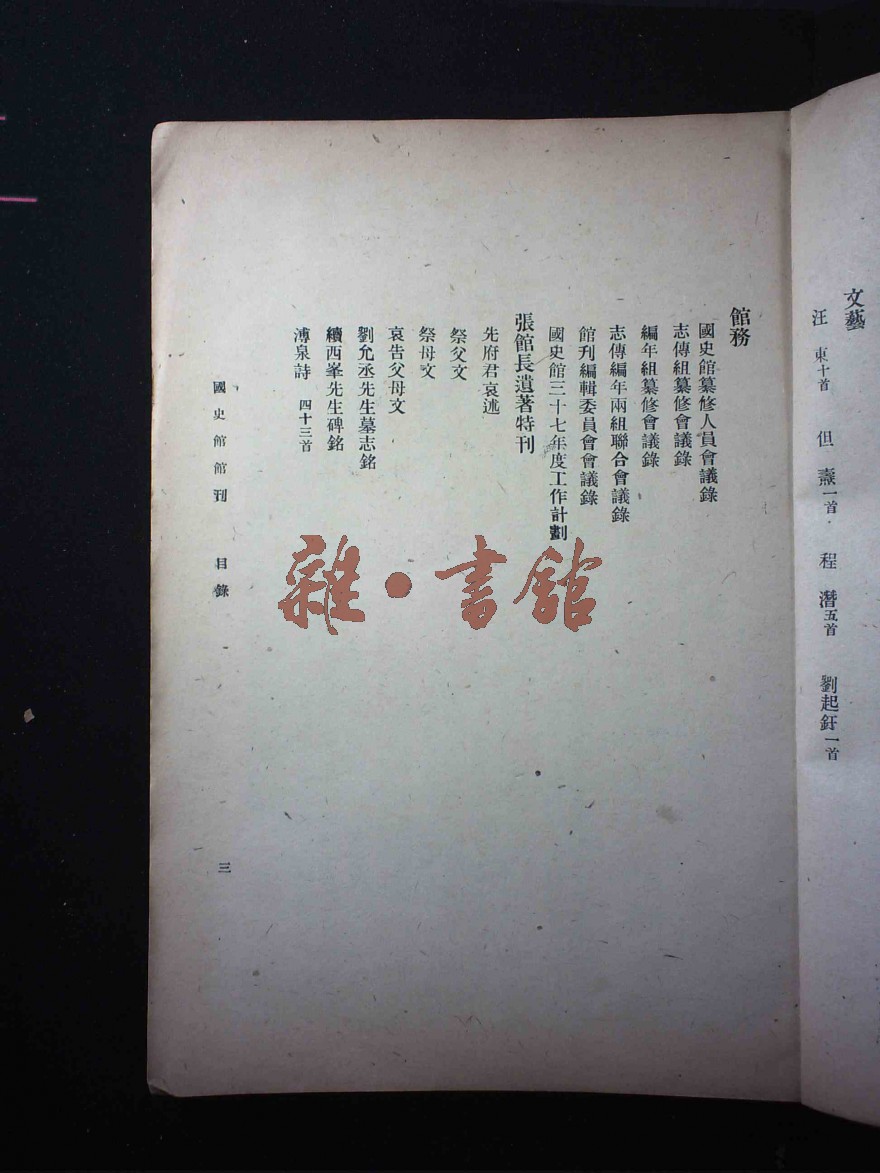 文藝
汪　東十首　但　燾一首　程　潛五首　劉起釪一首
館務
國史館纂修人員會議錄
志傳組纂修會議錄
編年組纂修會議錄
志傳編年兩組聯合會議錄
館刊編輯委員會會議錄
國史館三十七年度工作計劃
張館長遺著特刊
先府君哀述
祭父文
祭母文
哀告父母文
劉允丞先生墓志銘
續西峯先生碑銘
溥泉詩　四十三首
國史館館刊　目錄　三
雜·書館